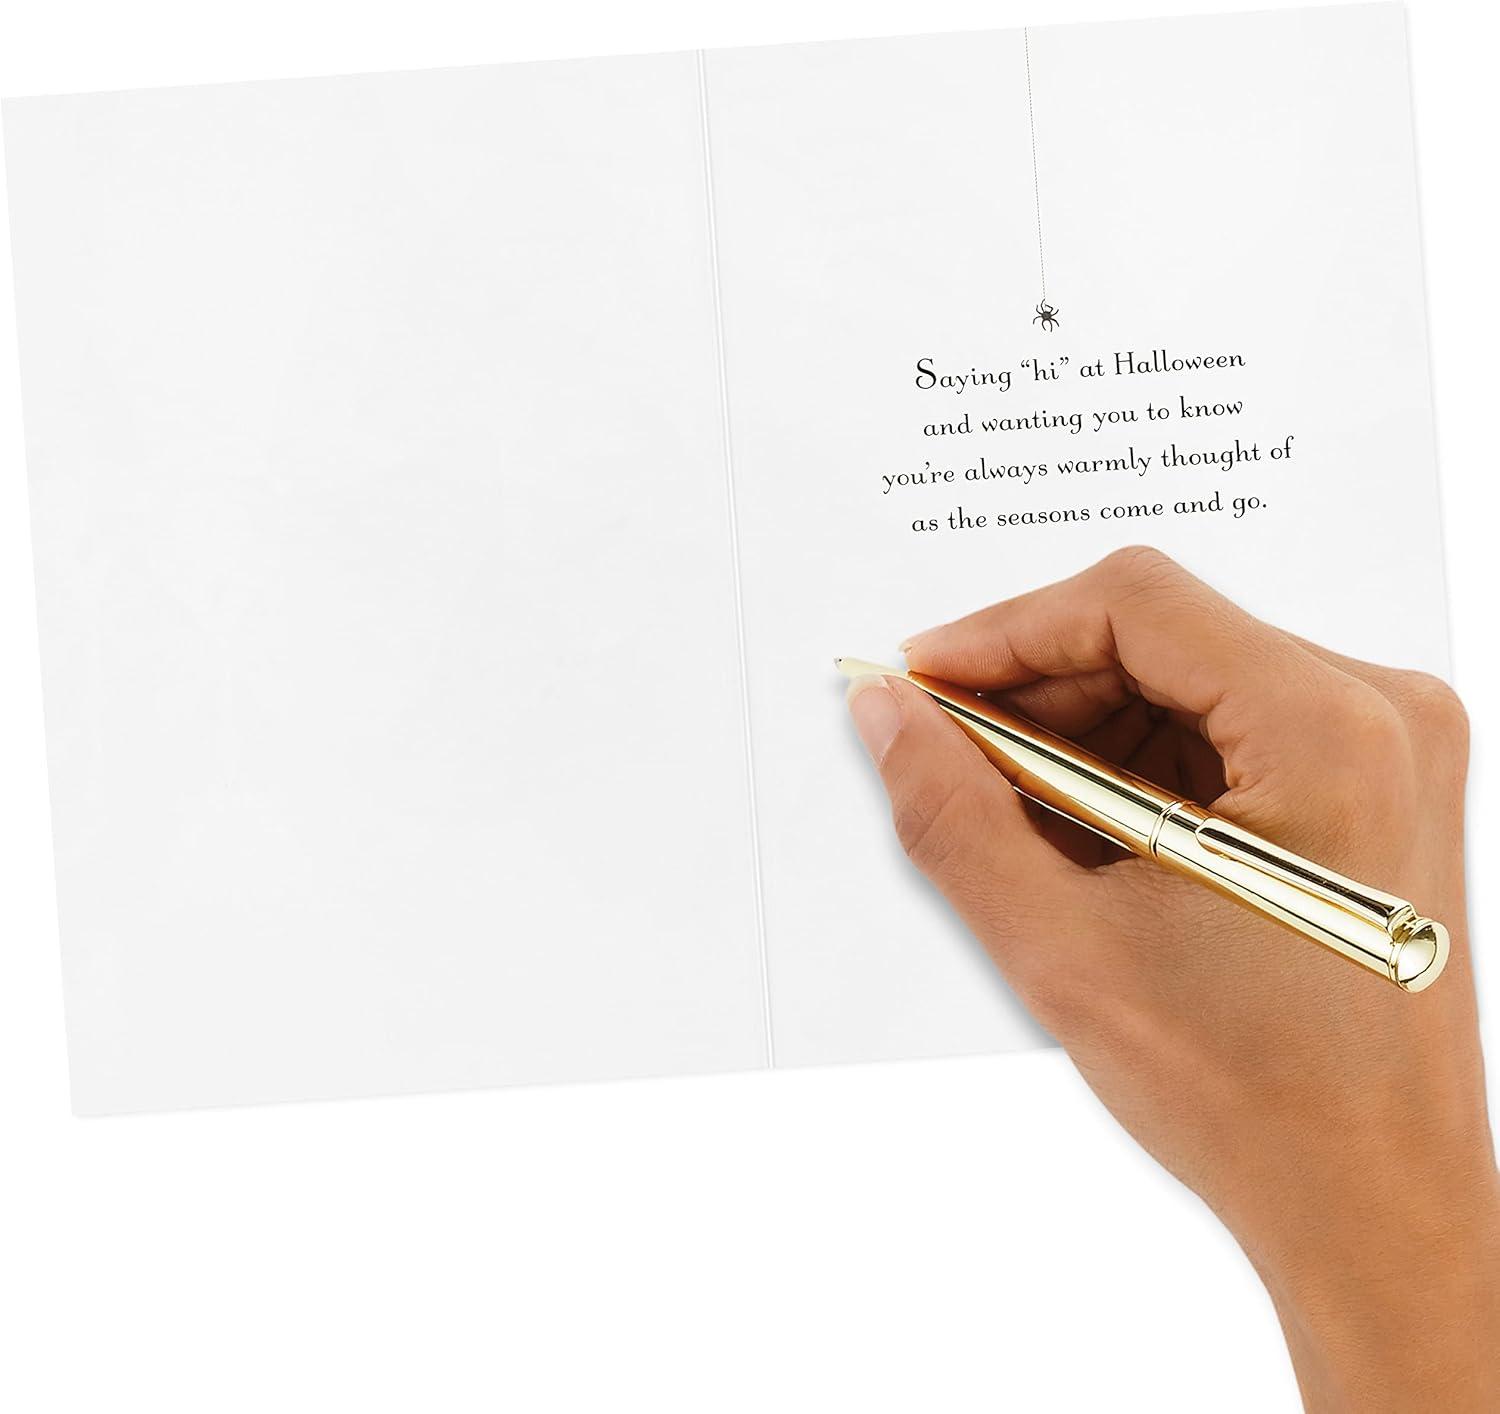 Saying “hi” at Halloween
and wanting you to know
you’re always warmly thought of
as the seasons come and go.